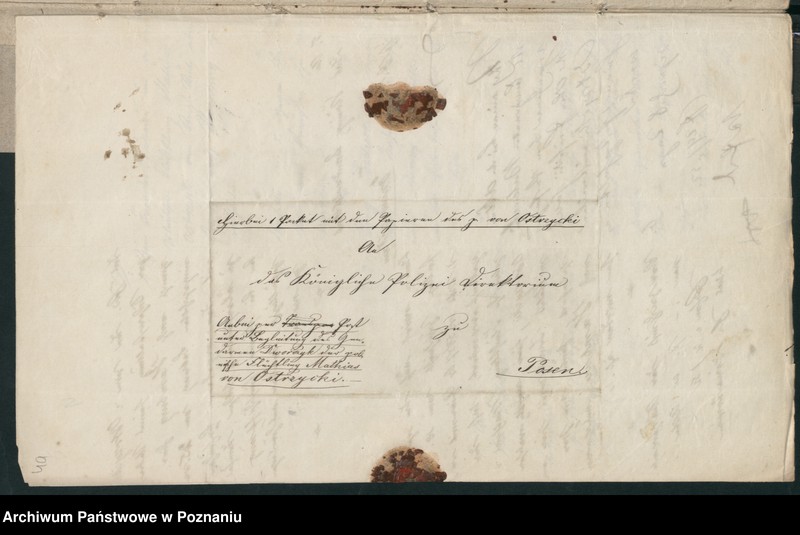 Hierbei 1 Packet mit den Papieren des p. von Ostrzycki
An
das Königliche Polizei Direktorium
zu
Posen
Anbei per Transpor Post
unter Begleitung des Gen-
darmen des pol-
nische Flüchtling Mathias
von Ostrzycki.
49
Archiwum Państwowe w Poznaniu